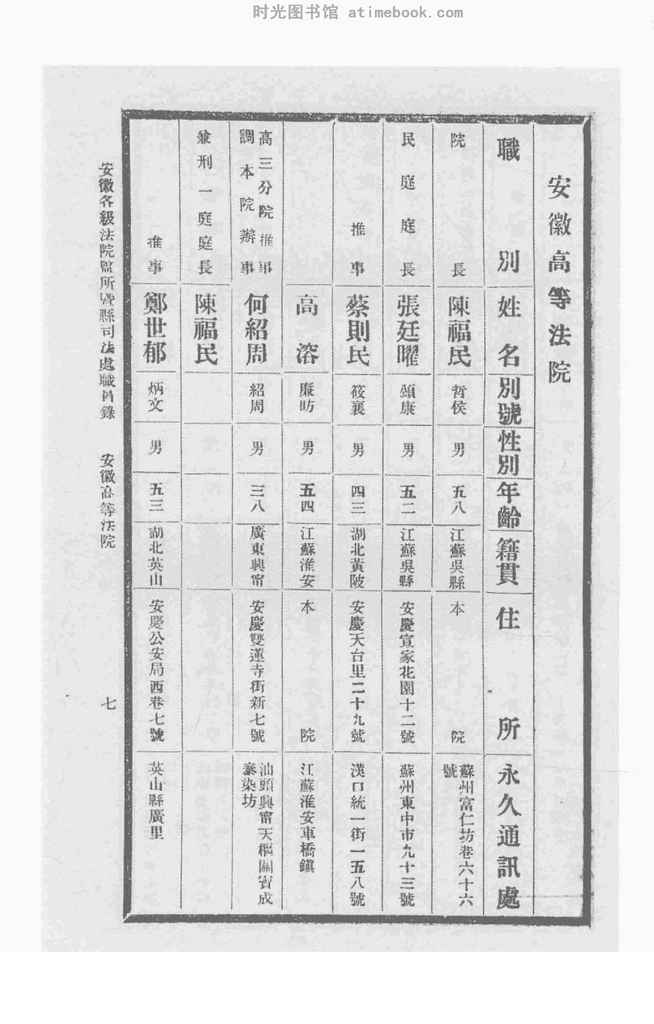 时光图书馆 atimebook.com
安徽高等法院
職別 姓名 別號 性別 年齡 籍貫 住所 永久通訊處
院長 陳福民 哲侯 男 五八 江蘇吳縣 本院 蘇州富仁坊巷六十六號
民庭庭長 張廷曜 頌康 男 五二 江蘇吳縣 安慶宣家花園十二號 蘇州東中市九十三號
推事 蔡則民 筱襄 男 四三 湖北黃陂 安慶天台里二十九號 漢口統一街一五八號
高溶 廉昉 男 五四 江蘇淮安 本院 江蘇淮安車橋鎮
高三分院推事調本院辦事 何紹周 紹周 男 三八 廣東興甯 安慶雙蓮寺街新七號 汕頭興甯天樞關寶成泰染坊
兼刑一庭庭長 陳福民
推事 鄭世郁 炳文 男 五三 湖北英山 安慶公安局西巷七號 英山縣廣里
安徽各級法院監所曁縣司法處職員錄 安徽高等法院 七